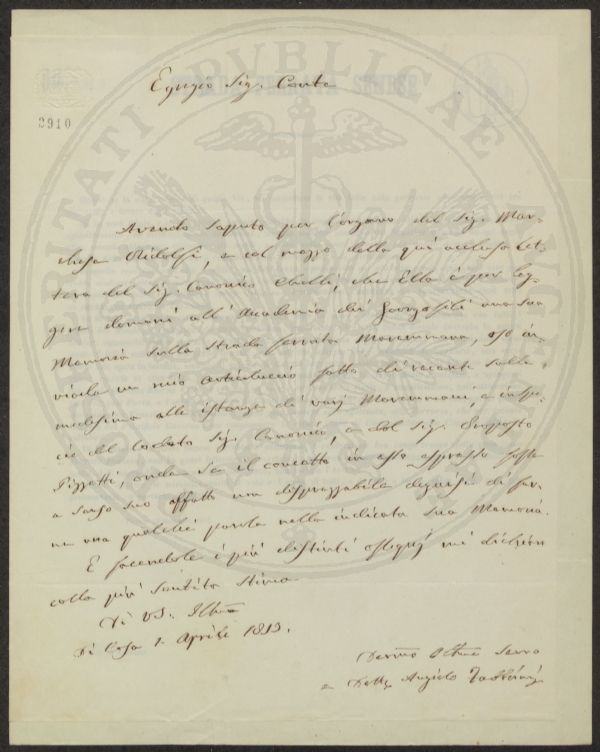 Egregio Sig. Conte
3910
PROSPERITATI PVBLICAE
Avendo saputo per l'organo del Sig. Mar-
chese Ridolfi, e col mezzo della quì acclusa let-
tera del Sig. Canonico Chelli, che Ella è per leg-
gere domani all'Accademia dei Georgofili una sua
Memoria sulla Strada ferrata Maremmana, oso in-
viarle un mio articoluccio fatto di recente sulla
medesima alle istanze di varj Maremmani, e in spe-
cie del lodato Sig. Canonico, e del Sig. Proposto
Pizzetti, onde se il concetto in esso espresso fosse
a senso suo affatto non disprezzabile degnisi di far-
ne una qualche parola nella indicata sua Memoria.
E facendole i più distinti ossequj mi dichiaro
colla più sentita stima
Di VS. Illma
Di Casa 1. Aprile
Devmo Obbmo Servo
Dott. Angiolo